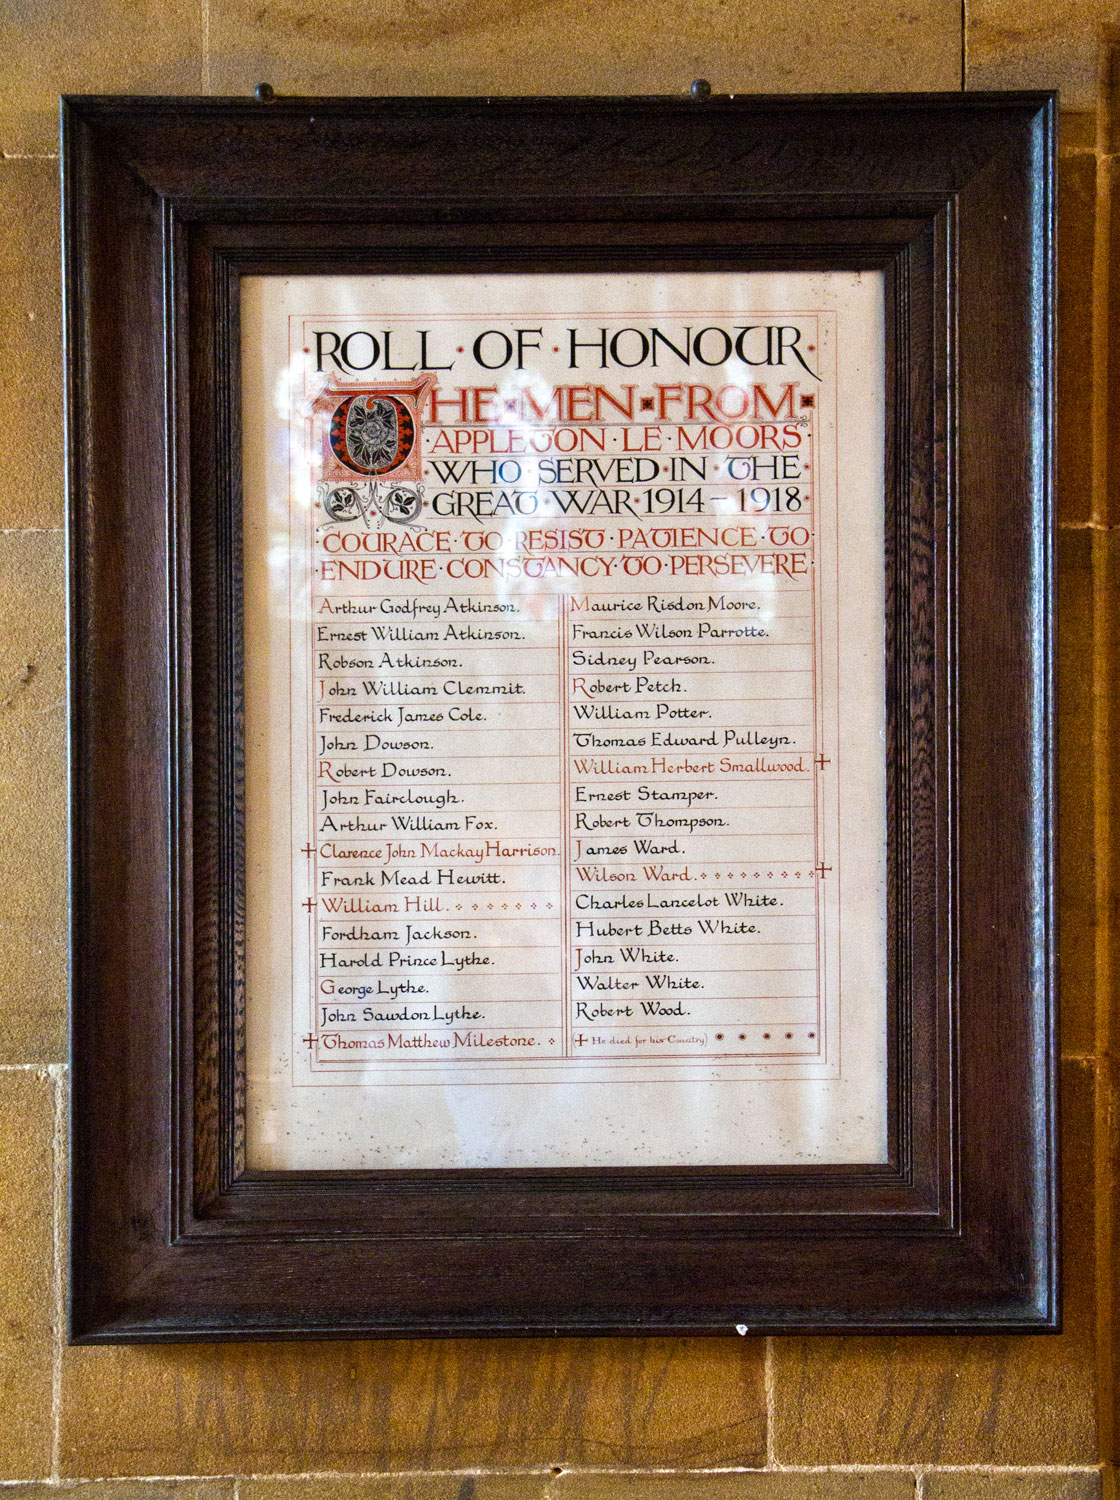 ·ROLL·OF·HONOUR·
THE·MEN·FROM
·APPLETON·LE·MOORS·
·WHO·SERVED·IN·THE·
·GREAT·WAR·1914–1918·
·COURAGE·TO·RESIST·PATIENCE·TO·
·ENDURE·CONSTANCY·TO·PERSEVERE·
Arthur Godfrey Atkinson.
Ernest William Atkinson.
Robson Atkinson.
John William Clemmit.
Frederick James Cole.
John Dowson.
Robert Dowson.
John Fairclough.
Arthur William Fox.
+ Clarence John Mackay Harrison.
Frank Mead Hewitt.
+ William Hill.
Fordham Jackson.
Harold Prince Lythe.
George Lythe.
John Sawdon Lythe.
+ Thomas Matthew Milestone.
Maurice Risdon Moore.
Francis Wilson Parrotte.
Sidney Pearson.
Robert Petch.
William Potter.
Thomas Edward Pulleyn.
William Herbert Smallwood. +
Ernest Stamper.
Robert Thompson.
James Ward.
Wilson Ward. +
Charles Lancelot White.
Hubert Betts White.
John White.
Walter White.
Robert Wood.
(+ He died for his Country)